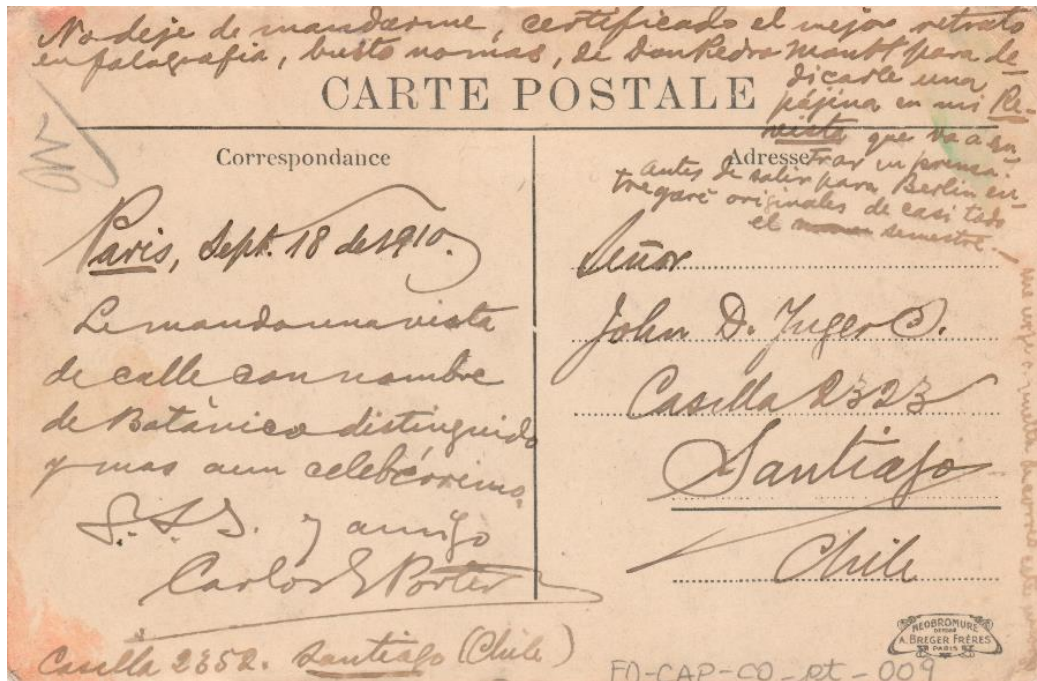 No deje de mandarme, certificado el mejor retrato
en fatografia, busto nomas, de don Pedro Montt para de-
dicarle una
pájina en mi Re-
vista que va a en-
trar en prensa.
Antes de salir para Berlin en-
tregaré originales de casi todo
el semestre.
CARTE POSTALE
Correspondance
Adresse
Paris, Sept. 18 de 1910.
Le mando una vista
de calle con nombre
de Botánico distinguido
y mas aun celebérrimo.
S.S.S. y amigo
Carlos E Porter
Casilla 2352. Santiago (Chile)
Señor
John D. Juger C.
Casilla 2323
Santiago
Chile
me urje a vuelta de correo este
NEOBROMURE
A. BREGER FRÈRES
PARIS
FO-CAP-CO-pt-009